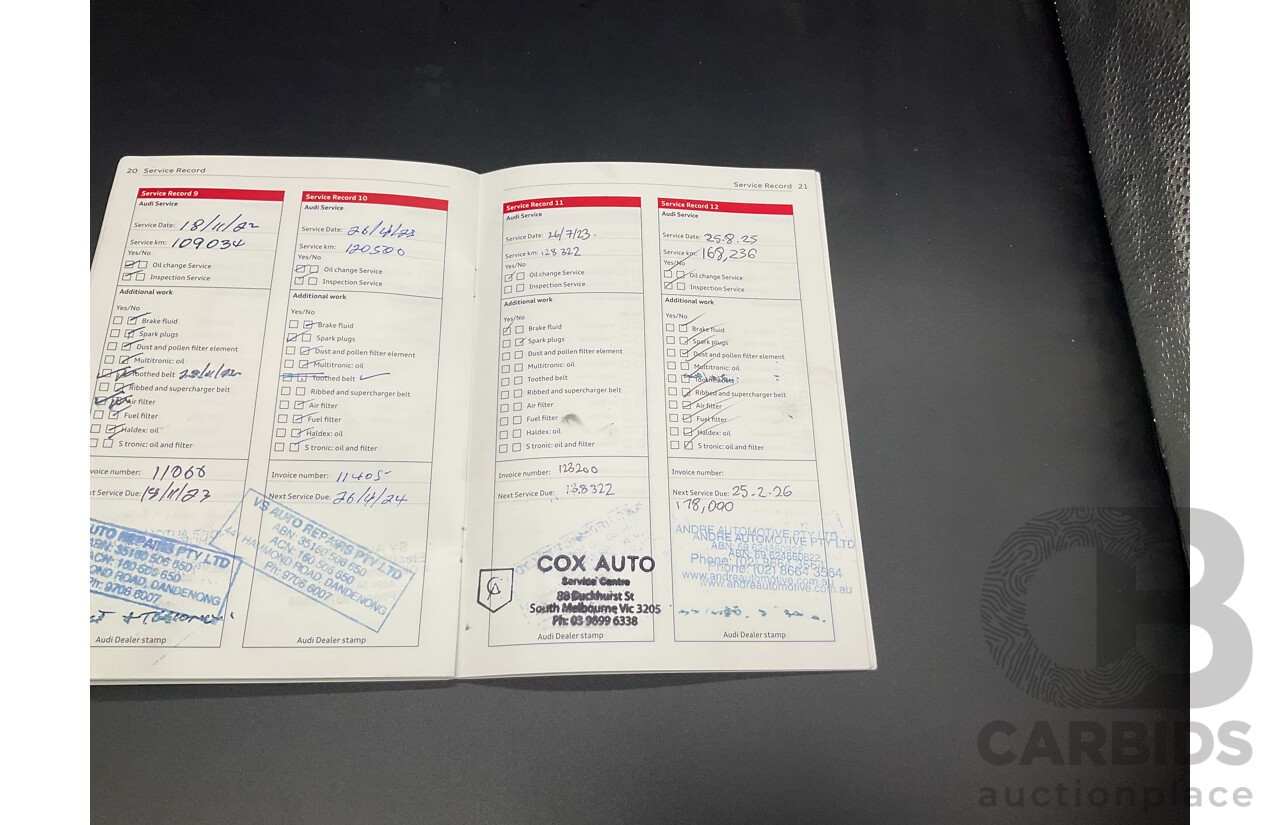 20 Service Record
Service Record 9
Audi Service
Service Date: 18/11/22
Service km: 109034
Yes/No
Oil change Service
Inspection Service
Additional work
Yes/No
Brake fluid
Spark plugs
Dust and pollen filter element
Multitronic: oil
Toothed belt
Ribbed and supercharger belt
Air filter
Fuel filter
Haldex: oil
S tronic: oil and filter
voice number: 11066
t Service Due: 18/11/23
UTO REPAIRS PTY LTD
ABN: 35160 506 650
ACN: 160 506 650
OND ROAD, DANDENONG
Ph: 9706 6007
Audi Dealer stamp
Service Record 10
Audi Service
Service Date: 26/4/23
Service km: 120500
Yes/No
Oil change Service
Inspection Service
Additional work
Yes/No
Brake fluid
Spark plugs
Dust and pollen filter element
Multitronic: oil
Toothed belt
Ribbed and supercharger belt
Air filter
Fuel filter
Haldex: oil
S tronic: oil and filter
Invoice number: 11405
Next Service Due: 26/4/24
VS AUTO REPAIRS PTY LTD
ABN: 35160 506 650
ACN: 160 506 650
HAMMOND ROAD, DANDENONG
Ph: 9706 6007
Audi Dealer stamp
Service Record 21
Service Record 11
Audi Service
Service Date: 26/7/23.
Service km: 128322
Yes/No
Oil change Service
Inspection Service
Additional work
Yes/No
Brake fluid
Spark plugs
Dust and pollen filter element
Multitronic: oil
Toothed belt
Ribbed and supercharger belt
Air filter
Fuel filter
Haldex: oil
S tronic: oil and filter
Invoice number: 123200
Next Service Due: 138322
COX AUTO
Service Centre
88 Buckhurst St
South Melbourne Vic 3205
Ph: 03 9699 6338
Audi Dealer stamp
Service Record 12
Audi Service
Service Date: 25.8.25
Service km: 168,236
Yes/No
Oil change Service
Inspection Service
Additional work
Yes/No
Brake fluid
Spark plugs
Dust and pollen filter element
Multitronic: oil
Toothed belt
Ribbed and supercharger belt
Air filter
Fuel filter
Haldex: oil
S tronic: oil and filter
Invoice number:
Next Service Due: 25.2.26
178,000
ANDRE AUTOMOTIVE PTY LTD
ANDRE AUTOMOTIVE PTY LTD
Phone: (02) 8664 3564
www.andreautomotive.com.au
www.andreautomotive.com.au
Audi Dealer stamp
CARBIDS
auctionplace